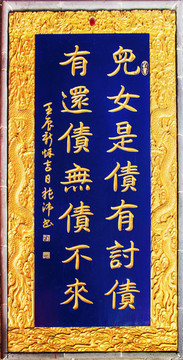 兒女是債有討債
有還債無債不來
壬辰新秋吉日